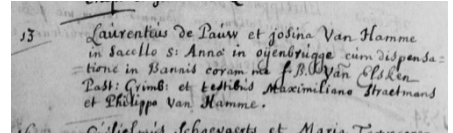 13 Laurentius de Pauw et josina Van Hamme
in sacello s: Annæ in oÿenbrugge cum dispensa=
tione in Bannis coram me f. B. Van Elsken
Past: Grimb: et testibus Maximiliano Straetmans
et Philippo Van Hamme.
et Maria